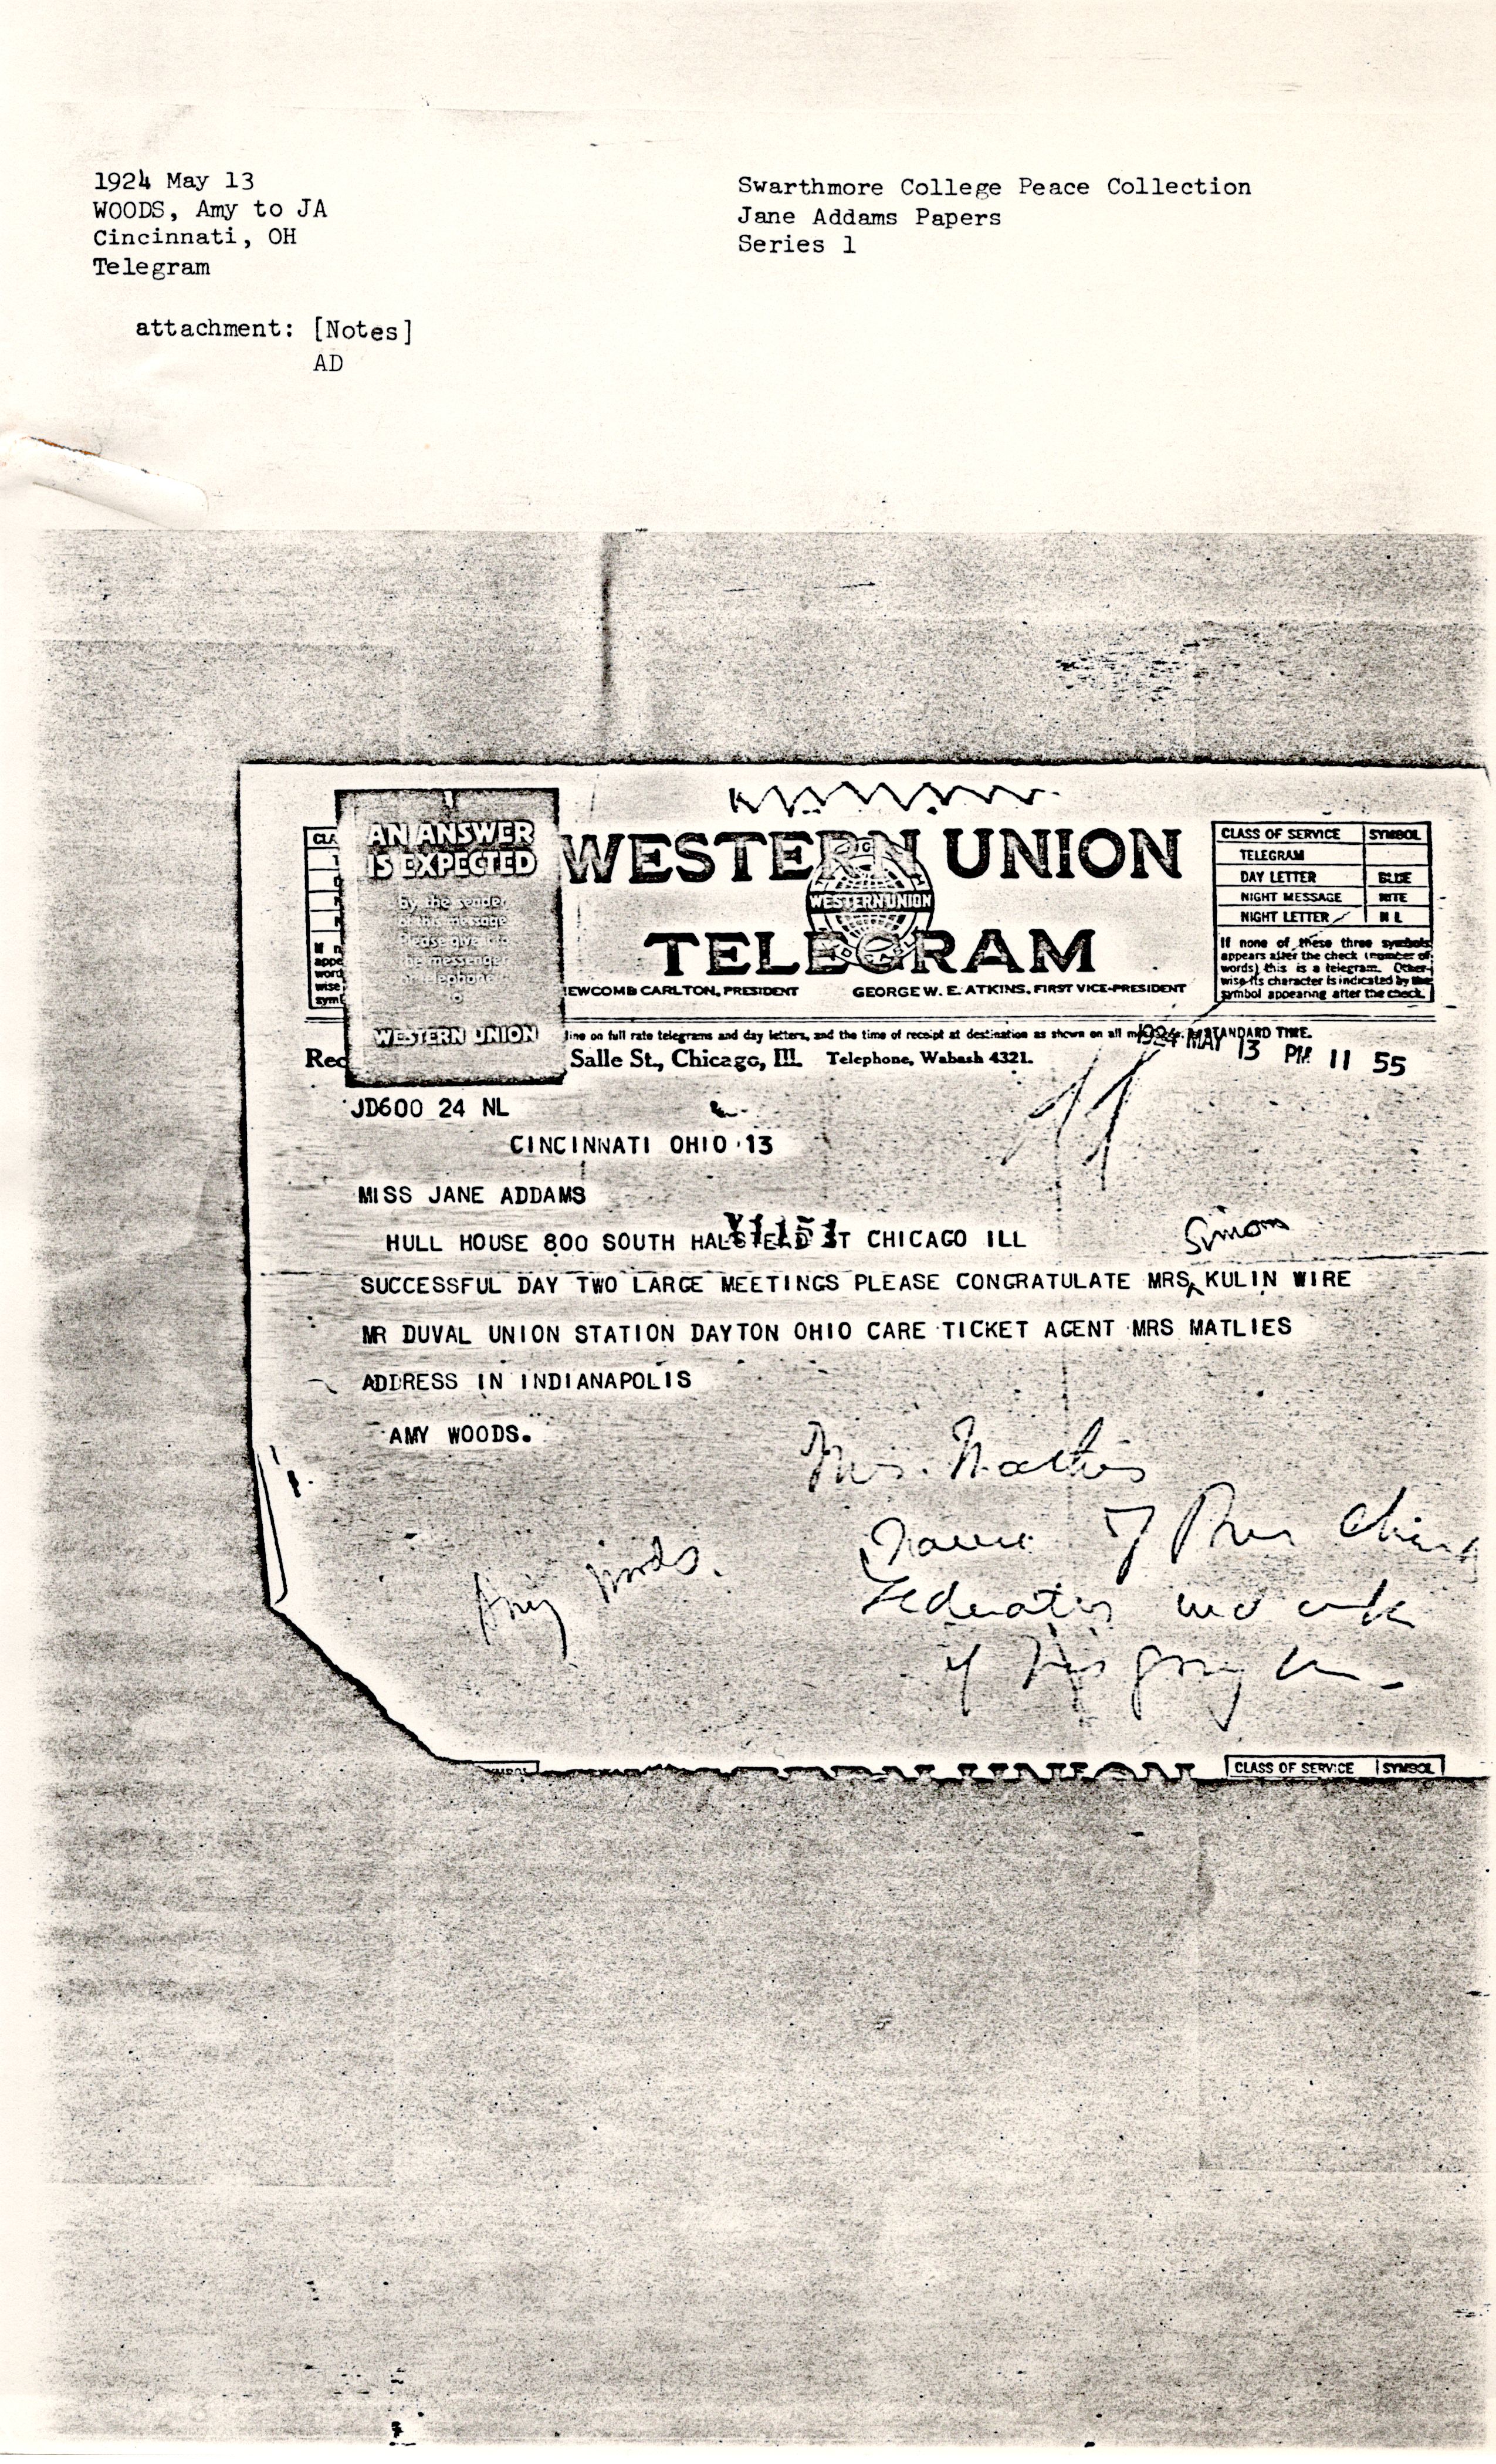 1924 May 13
WOODS, Amy to JA
Cincinnati, OH
Telegram
attachment: [Notes]
AD
Swarthmore College Peace Collection
Jane Addams Papers
Series 1
AN ANSWER
IS EXPECTED
by the sender
of this message
Please give it to
the messenger
or telephone
to
WESTERN UNION
WESTERN UNION
WESTERN UNION
TELEGRAM
NEWCOMB CARLTON, PRESIDENT GEORGE W. E. ATKINS, FIRST VICE-PRESIDENT
CLASS OF SERVICE SYMBOL
TELEGRAM
DAY LETTER BLUE
NIGHT MESSAGE NITE
NIGHT LETTER N L
If none of these three symbols
appears after the check (number of
words) this is a telegram. Other-
wise its character is indicated by the
symbol appearing after the check.
line on full rate telegrams and day letters, and the time of receipt at destination as shown on all STANDARD TIME.
Salle St., Chicago, Ill. Telephone, Wabash 4321.
1924 MAY 13 PM 11 55
JD600 24 NL
CINCINNATI OHIO 13
MISS JANE ADDAMS
Y1151
HULL HOUSE 800 SOUTH HALSTEAD ST CHICAGO ILL
Simon
SUCCESSFUL DAY TWO LARGE MEETINGS PLEASE CONGRATULATE MRS KULIN WIRE
MR DUVAL UNION STATION DAYTON OHIO CARE TICKET AGENT MRS MATLIES
ADDRESS IN INDIANAPOLIS
AMY WOODS.
Mrs. Mathis
Amy Woods.
CLASS OF SERVICE SYMBOL